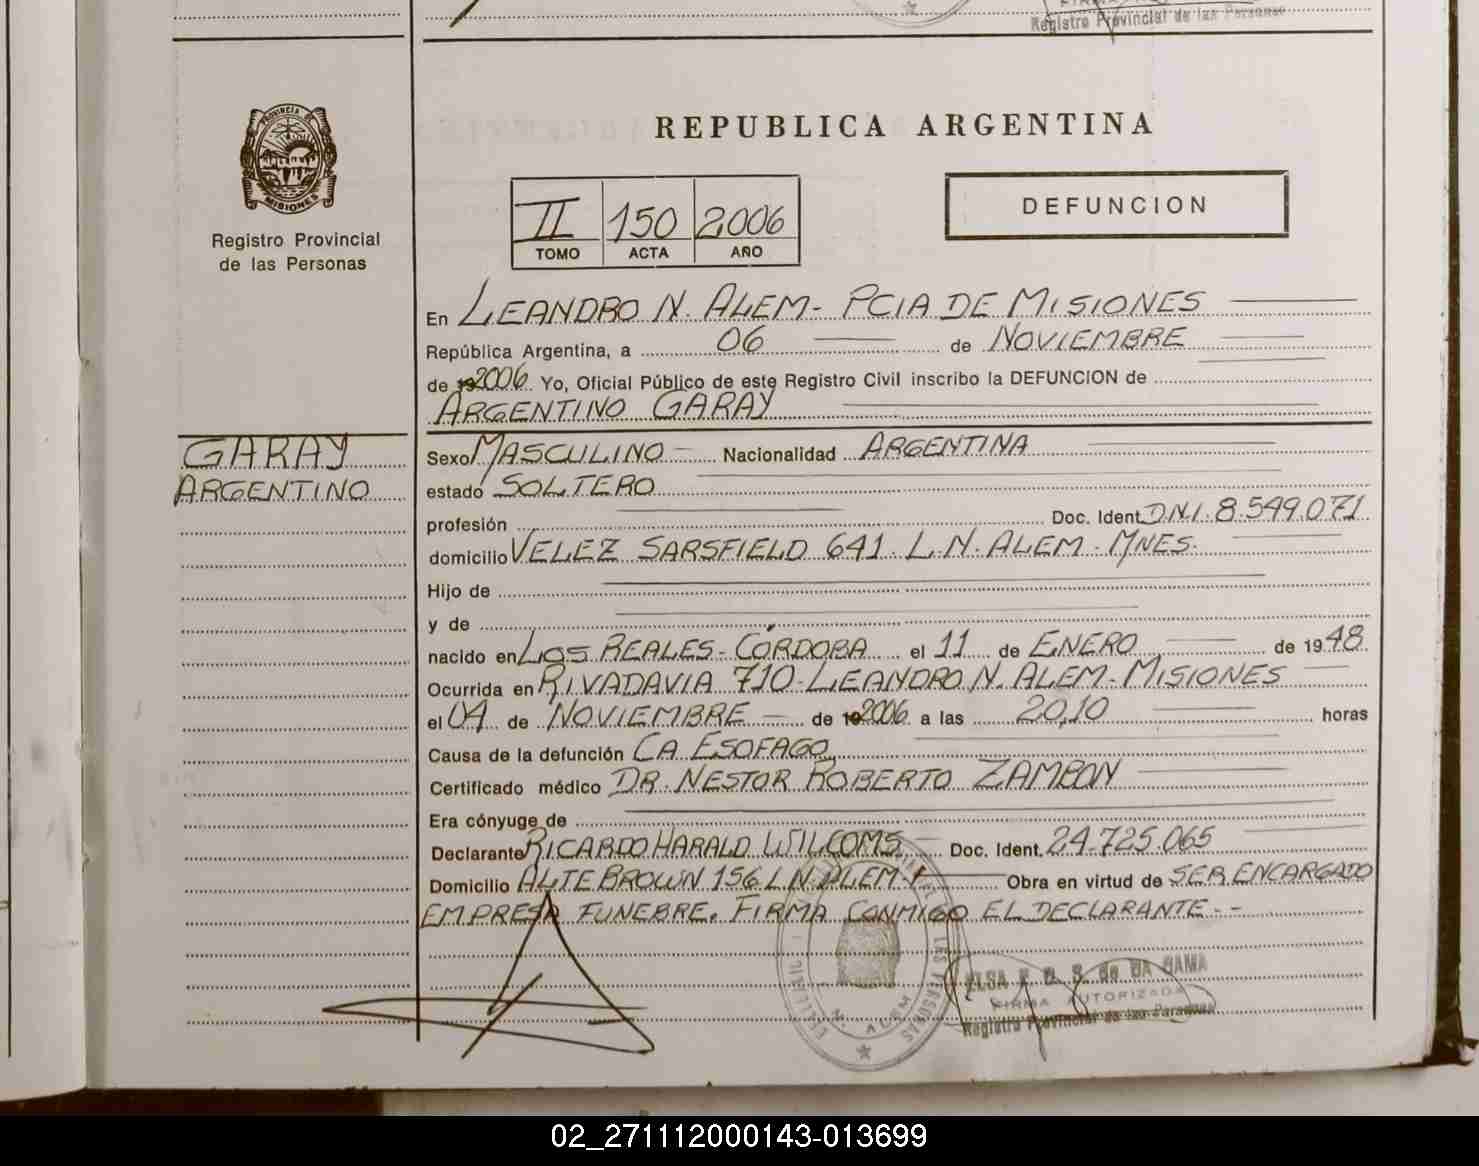 Registro Provincial de las Personas
PROVINCIA DE
MISIONES
Registro Provincial
de las Personas
REPUBLICA ARGENTINA
II 150 2006
TOMO ACTA AÑO
DEFUNCION
En LEANDRO N. ALEM - PCIA DE MISIONES
República Argentina, a 06 de NOVIEMBRE
de 2006 Yo, Oficial Público de este Registro Civil inscribo la DEFUNCION de
ARGENTINO GARAY
GARAY
ARGENTINO
Sexo MASCULINO Nacionalidad ARGENTINA
estado SOLTERO
profesión Doc. Ident. D.N.I. 8.549.071
domicilio VELEZ SARSFIELD 641. L.N. ALEM. MNES.
Hijo de
y de
nacido en LOS REALES - CÓRDOBA el 11 de ENERO de 1948
Ocurrida en RIVADAVIA 710 - LEANDRO N. ALEM - MISIONES
el 04 de NOVIEMBRE de 2006 a las 20,10 horas
Causa de la defunción CA ESOFAGO
Certificado médico DR. NESTOR ROBERTO ZAMPON
Era cónyuge de
Declarante RICARDO HARALD WILCOMS Doc. Ident. 24.725.065
Domicilio ALTE BROWN 156 L.N. ALEM Obra en virtud de SER ENCARGADO
EMPRESA FUNEBRE. FIRMA CONMIGO EL DECLARANTE.-
ELSA de DA GAMA
FIRMA AUTORIZADA
Registro Provincial de las Personas
02_271112000143-013699